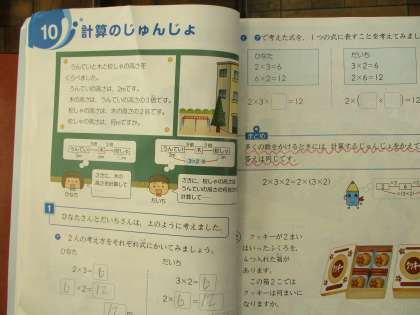 10 計算のじゅんじょ
うんていと木と校しゃの高さを
くらべました。
うんていの高さは、2mです。
木の高さは、うんていの高さの3倍です。
校しゃの高さは、木の高さの2倍です。
校しゃの高さは、何mですか。
うんてい 木 校しゃ
3倍 2倍
2m
さきに、木の
高さを計算して
ひなた
うんてい 木 校しゃ
3倍 2倍
2m
3×2倍
さきに、校しゃの高さは
うんていの高さの何倍か
計算して
だいち
1
ひなたさんとだいちさんは、上のように考えました。
ア 2人の考え方をそれぞれ式にかいてみましょう。
ひなた
2×3=6
6×2=12
だいち
3×2=6
2×6=12
で考えた式を、1つの式に表すことを考えてみまし
ひなた
2×3=6
6×2=12
だいち
3×2=6
2×6=12
2×3× =12
2×( × )=12
まとめ
多くの数をかけるときには、計算するじゅんじょをかえて
答えは同じです。
2×3×2=2×(3×2)
クッキーが2まい
はいったふくろを、
4つ入れた箱が
あります。
この箱2こでは
クッキーは何まいに
なりますか。
クッキー